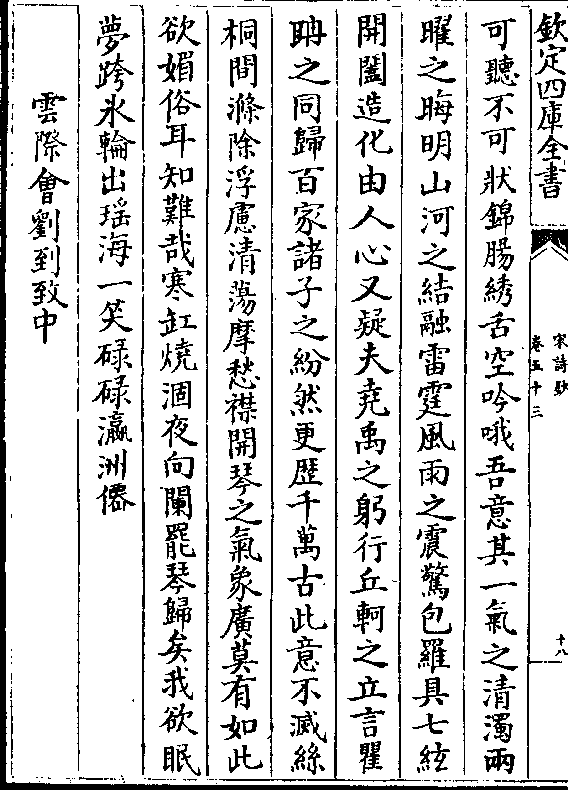 欽定四庫全書
宋詩鈔
卷五十三
十八
可聽不可狀錦腸綉舌空吟哦吾意其一氣之清濁兩
曜之晦明山河之結融雷霆風雨之震驚包羅具七絃
開闔造化由人心又疑夫堯禹之躬行丘軻之立言瞿
聃之同歸百家諸子之紛然更歷千萬古此意不滅絲
桐間滌除浮慮清蕩摩愁襟開琴之氣象廣莫有如此
欲媚俗耳知難哉寒缸燒涸夜向闌罷琴歸矣我欲眠
夢跨氷輪出瑶海一笑碌碌瀛洲僊
雲際會劉到致中